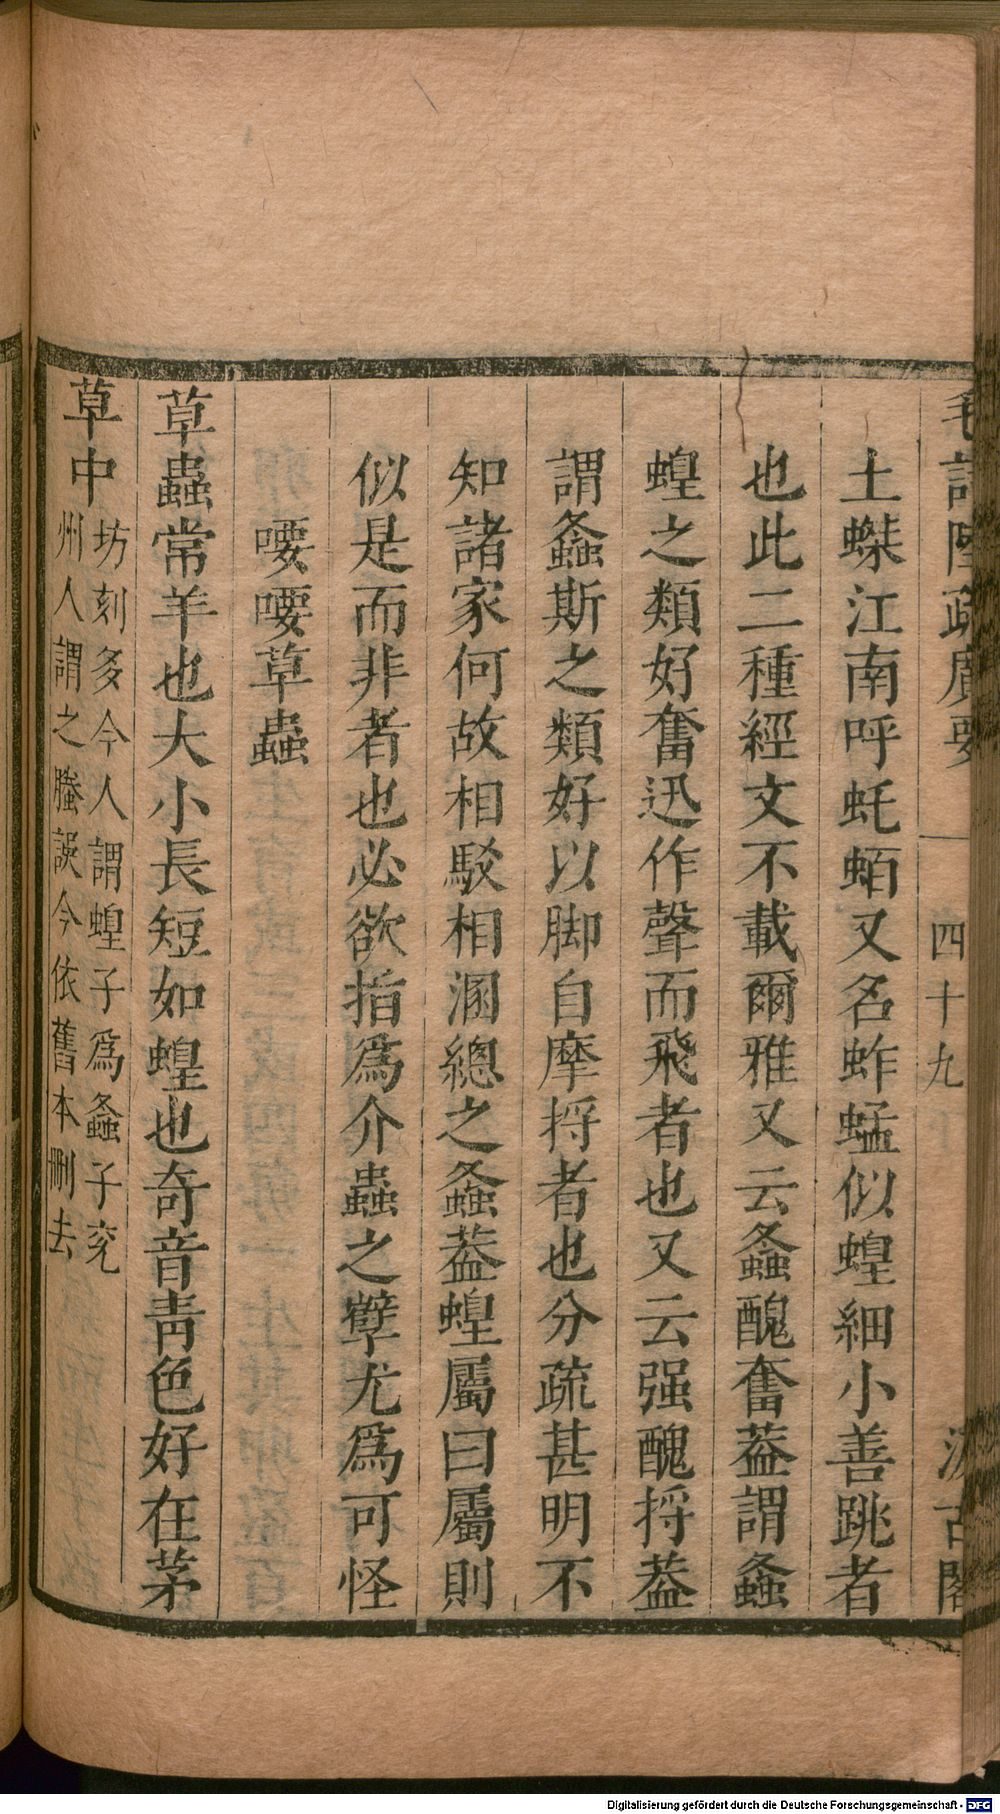 毛詩陸疏廣要
四十九
汲古閣
土蠂江南呼虴蛨又名蚱蜢似蝗細小善跳者
也此二種經文不載爾雅又云螽醜奮葢謂螽
蝗之類好奮迅作聲而飛者也又云强醜捋葢
謂螽斯之類好以脚自摩捋者也分疏甚明不
知諸家何故相駁相溷總之螽葢蝗屬曰屬則
似是而非者也必欲指爲介蟲之孼尤爲可怪
喓喓草蟲
草蟲常羊也大小長短如蝗也奇音靑色好在茅
草中
坊刻多今人謂蝗子爲螽子兖
州人謂之螣誤今依舊本刪去
Digitalisierung gefördert durch die Deutsche Forschungsgemeinschaft - DFG